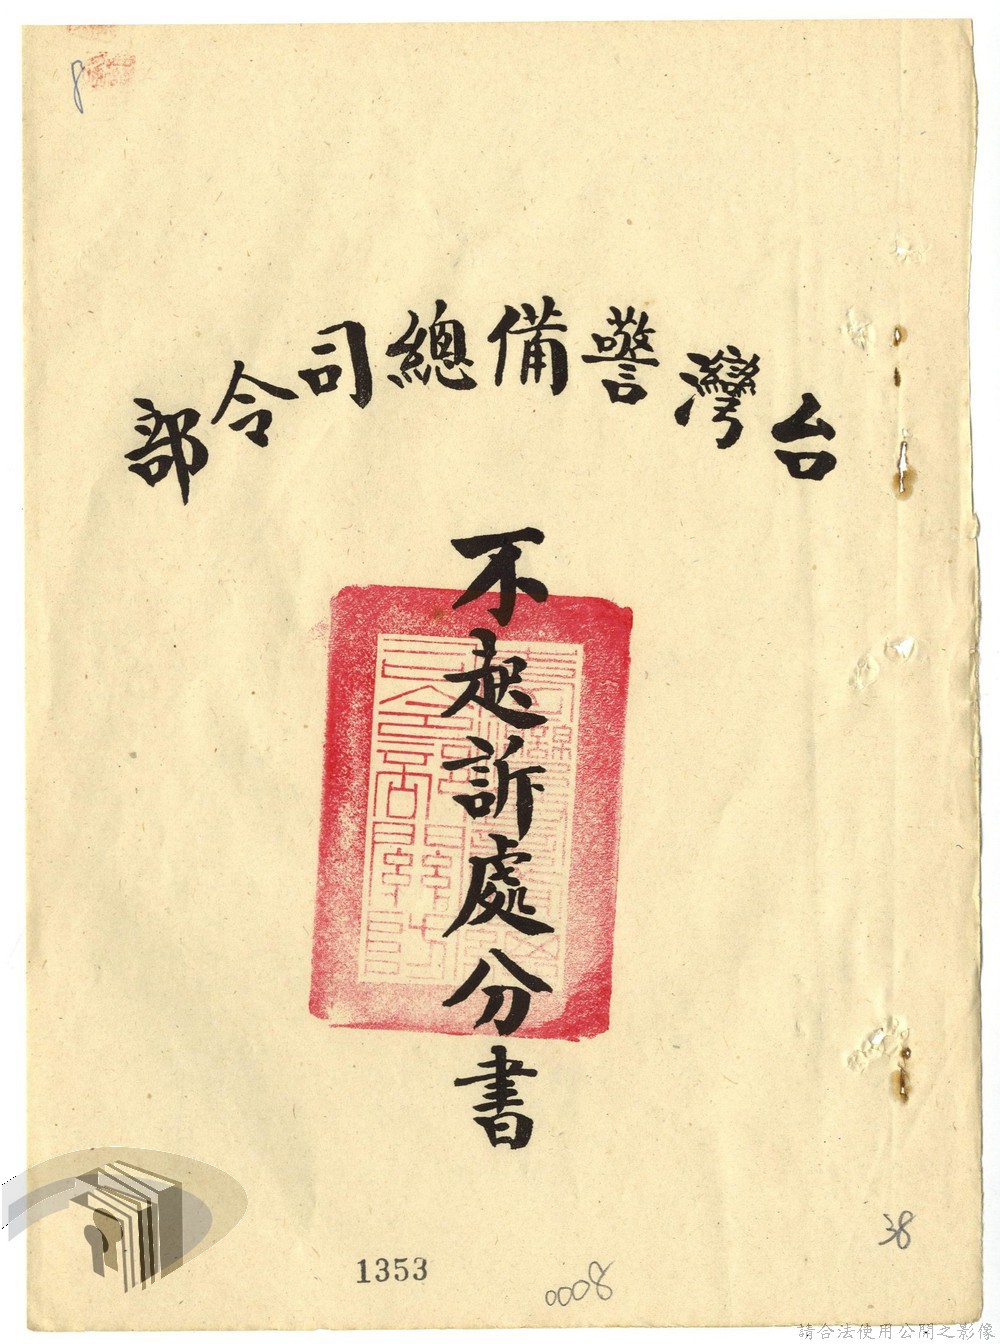 8
台灣警備總司令部
不起訴處分書
38
1353
0008
請合法使用公開之影像